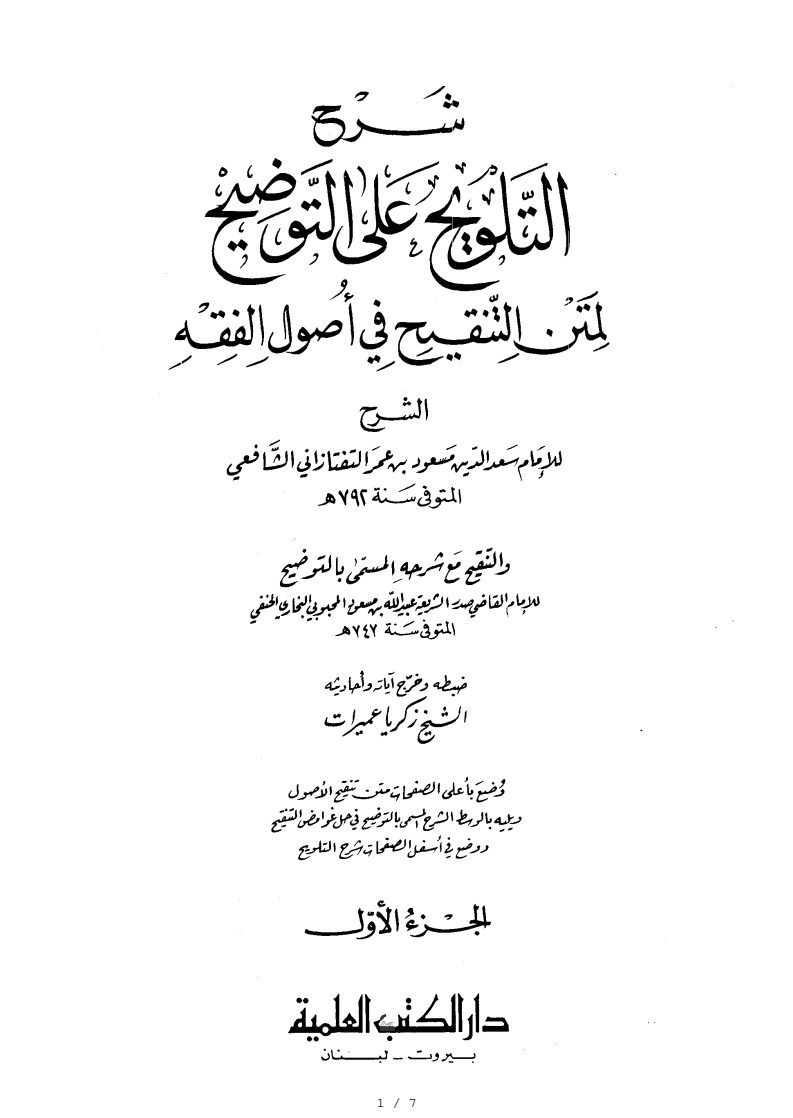 شَرح
التَّلويحُ عَلى التَّوضِيحِ
لِمَتن التَّنقيح في أُصول الفِقْهِ
الشرح
للإمَام سَعد الدّين مَسعود بن عمَر التفتازاني الشَّافعي
المتوفى سَنة ٧٩٢ هـ
والتنقيح مَع شرحهِ المسمّى بالتوضيح
للإمام القاضي صدر الشريعة عبيد الله بن مسعود المحبوبي البخاري الحنفي
المتوفى سَنة ٧٤٧ هـ
ضبطه وخرّج آياته وأحاديثه
الشيخ زكريا عميرات
وُضِعَ بأعلى الصفحات متن تنقيح الأصول
ويليه بالوسط الشرح المسمى بالتوضيح في حل غوامض التنقيح
ووضع في أسفل الصفحات شرح التلويح
الجزءُ الأوّل
دار الكتب العلمية
بيروت - لبنان
1 / 7